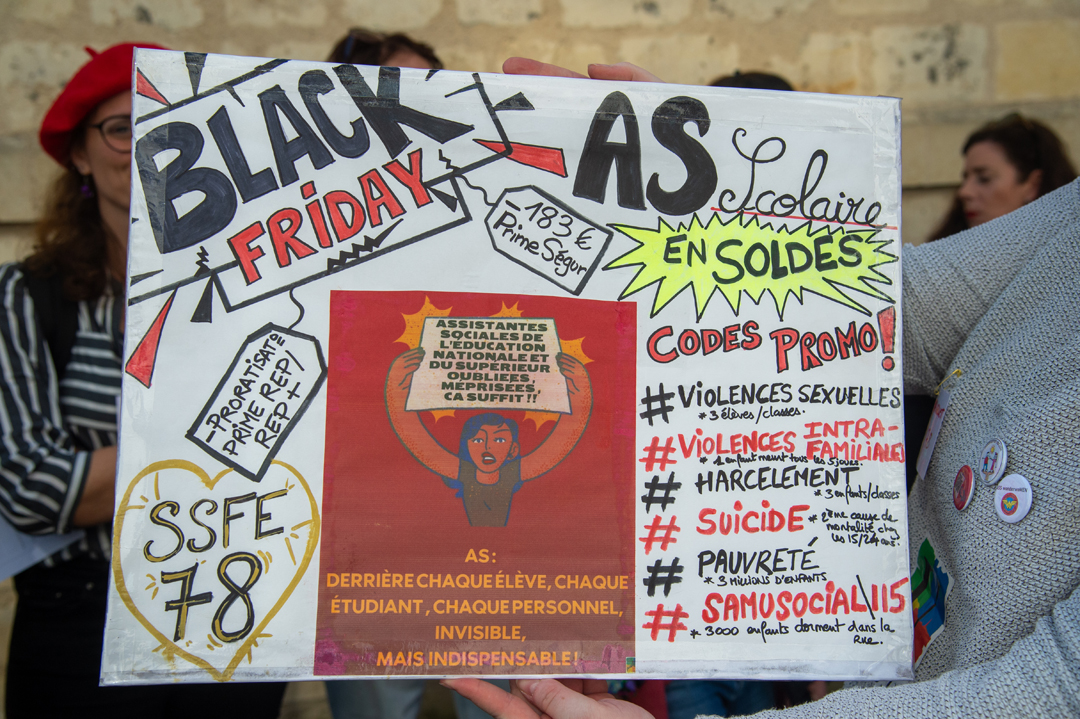 BLACK
FRIDAY
AS
Scolaire
-183 €
Prime Ségur
EN SOLDES
CODES PROMO!
-PRORATISAT°
PRIME REP/
REP +
SSFE
78
ASSISTANTES
SOCIALES DE
L'EDUCATION
NATIONALE ET
DU SUPÉRIEUR
OUBLIÉES,
MEPRISÉES,
CA SUFFIT !!
AS:
DERRIÈRE CHAQUE ÉLÈVE, CHAQUE
ÉTUDIANT, CHAQUE PERSONNEL,
INVISIBLE,
MAIS INDISPENSABLE!
#VIOLENCES SEXUELLES
* 3 élèves/classes.
#VIOLENCES INTRA-
FAMILIALES
* 1 enfant meurt tous les 5 jours.
# HARCELEMENT
* 3 enfants/classes
# SUICIDE * 2ème cause de
mortalité chez
les 15/24 ans.
# PAUVRETÉ
* 3 MILLIONS D'ENFANTS
# SAMUSOCIAL\115
* 3000 enfants dorment dans la
rue.